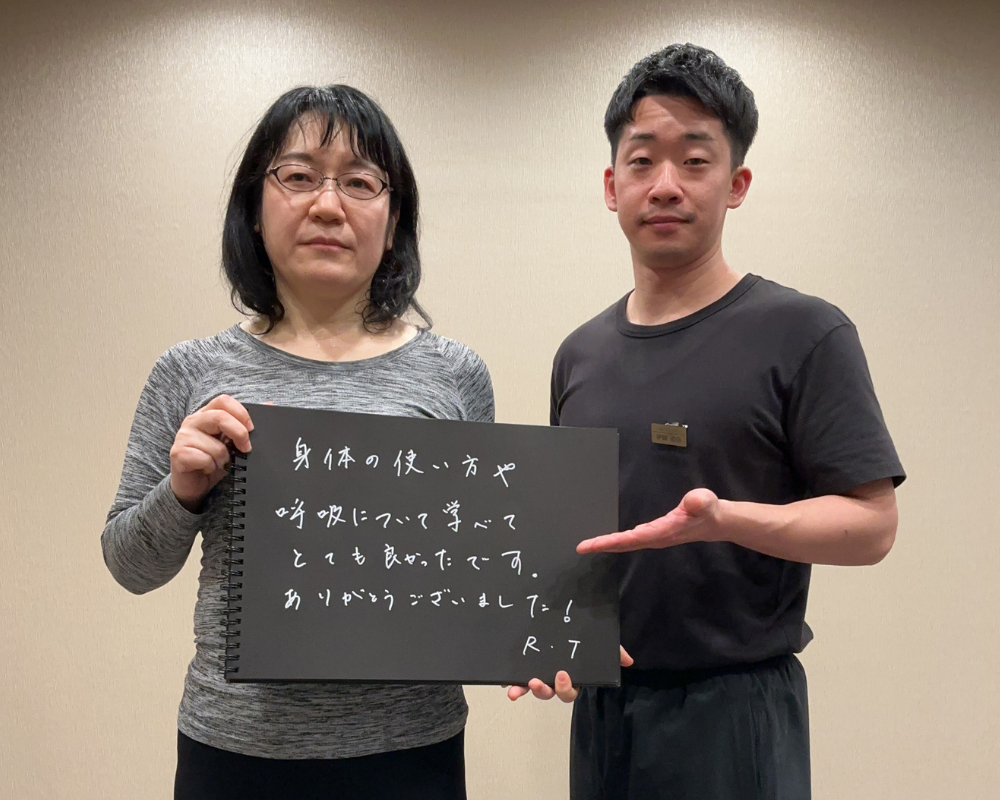 身体の使い方や
呼吸について学べて
とても良かったです。
ありがとうございました!
R.T